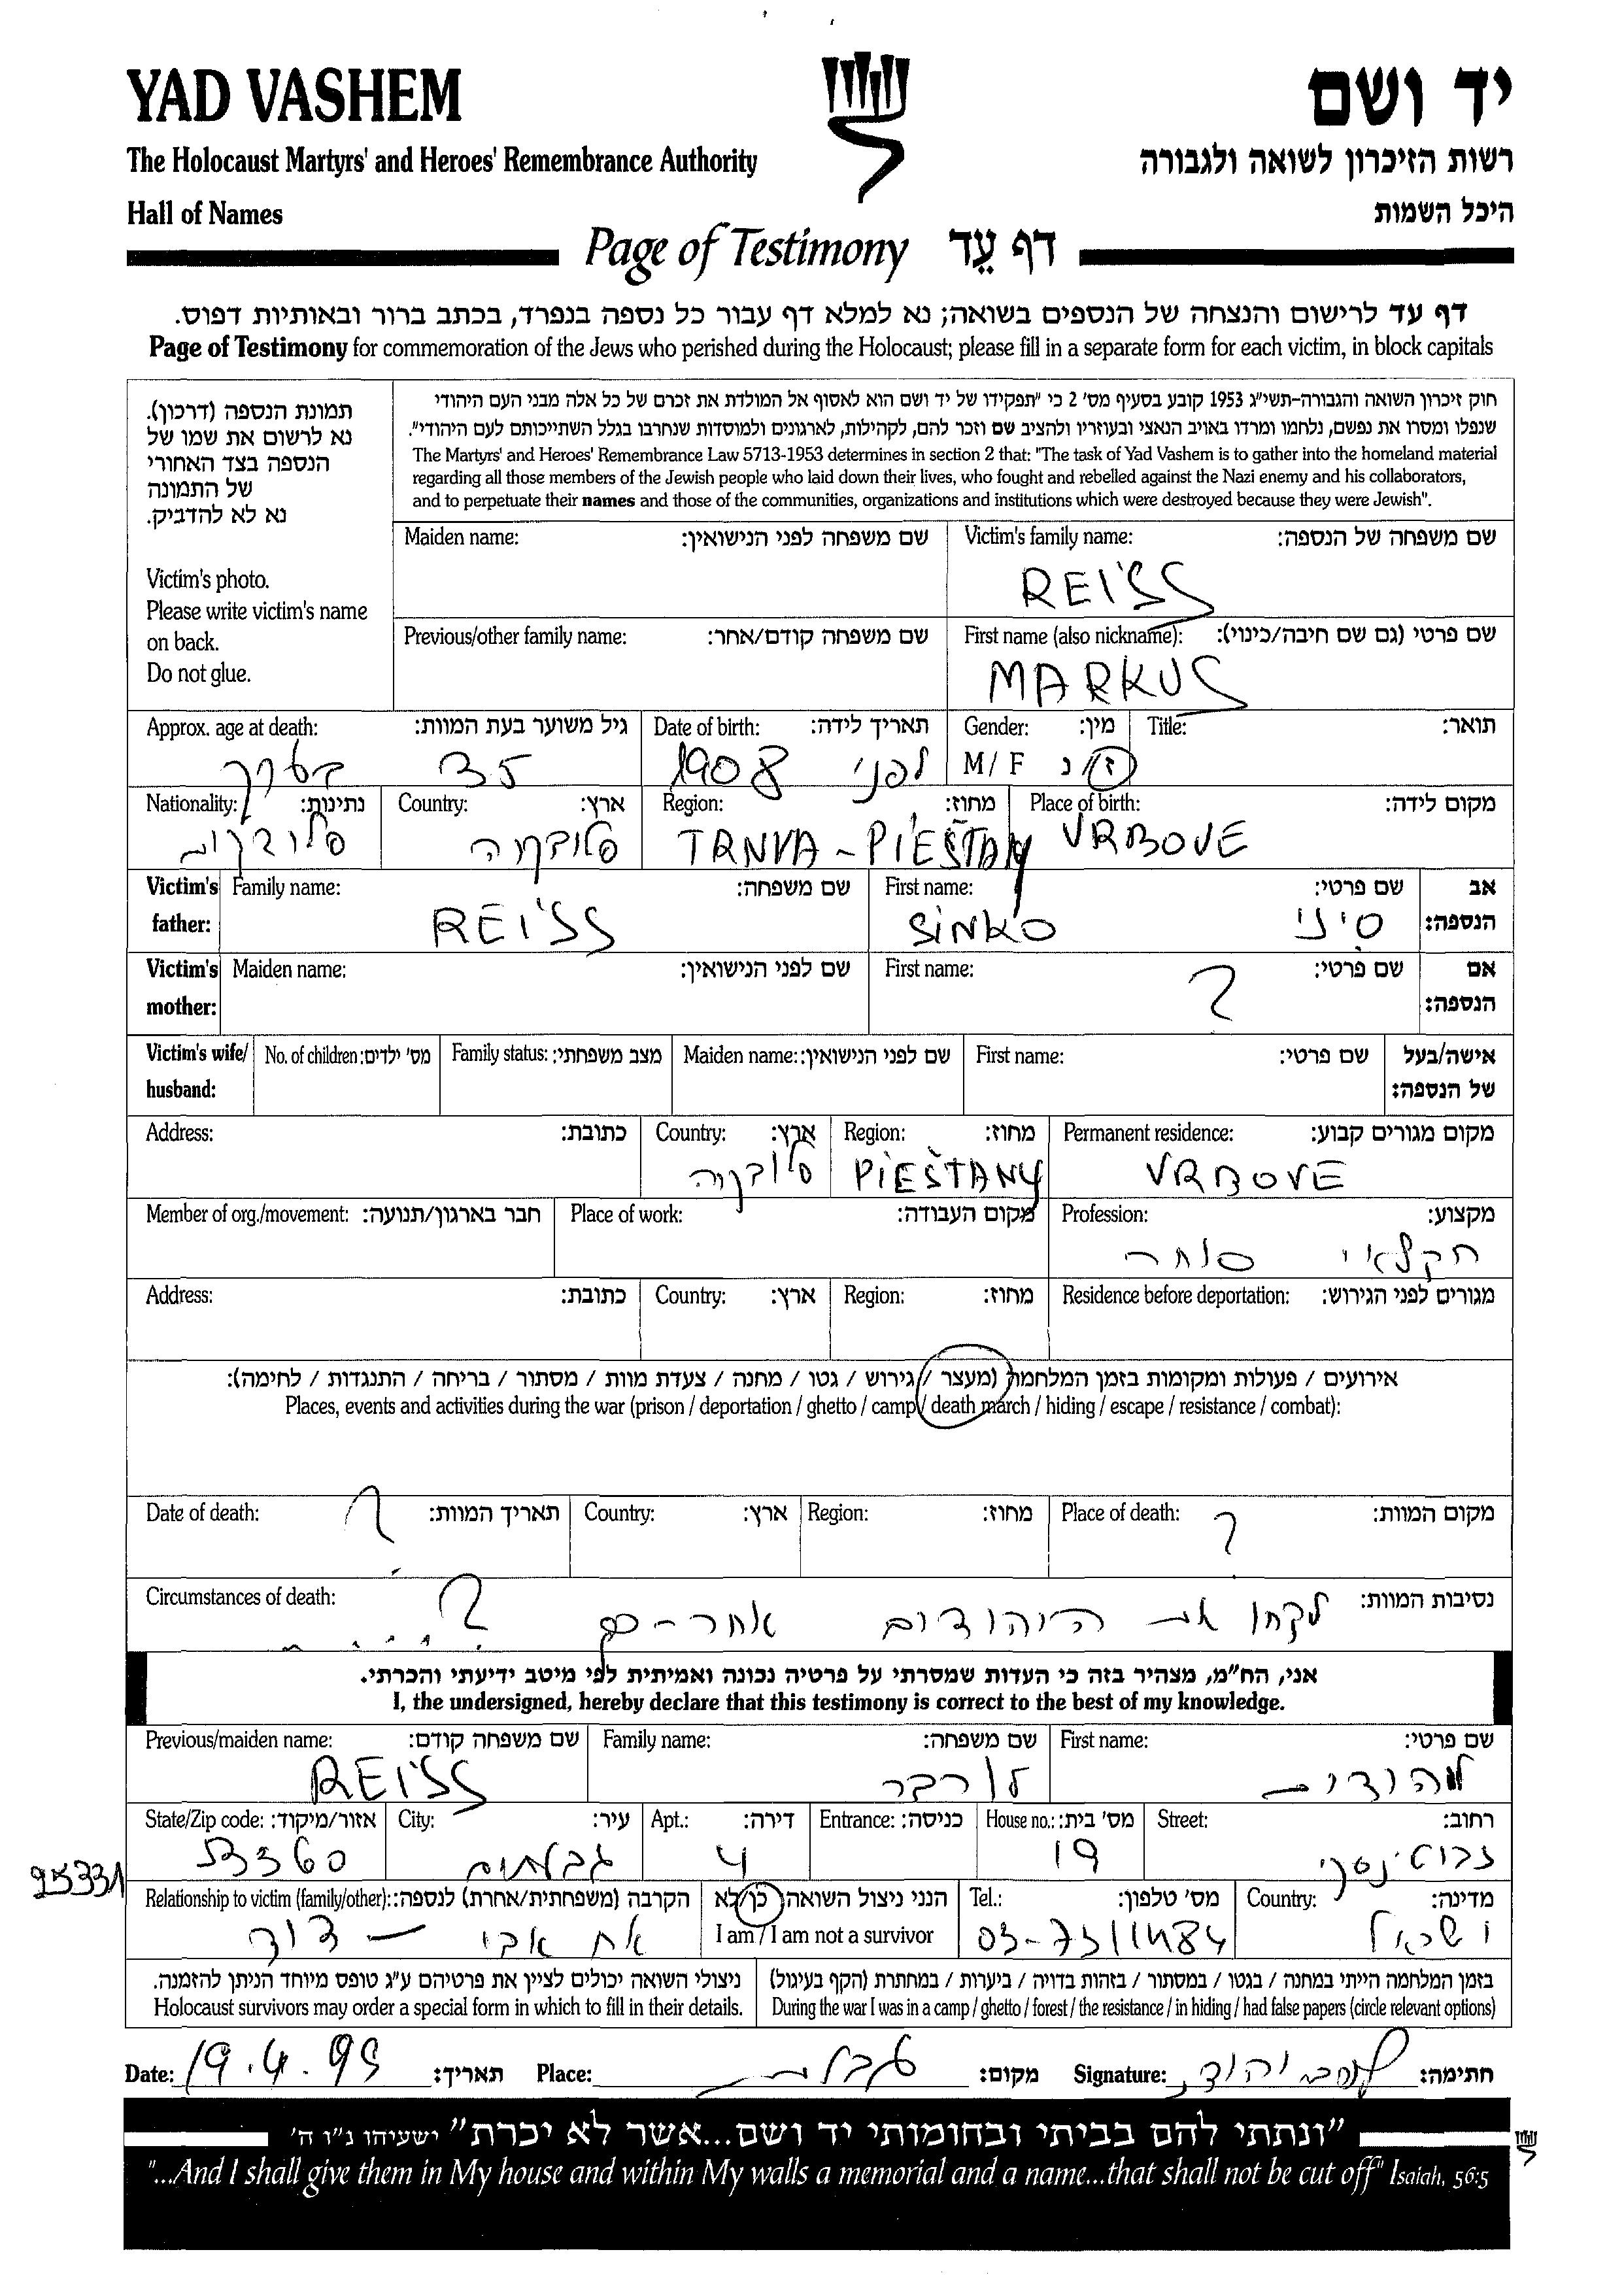 YAD VASHEM
יד ושם
The Holocaust Martyrs' and Heroes' Remembrance Authority
רשות הזיכרון לשואה ולגבורה
Hall of Names
היכל השמות
Page of Testimony דף עֵד
דף עד לרישום והנצחה של הנספים בשואה; נא למלא דף עבור כל נספה בנפרד, בכתב ברור ובאותיות דפוס.
Page of Testimony for commemoration of the Jews who perished during the Holocaust; please fill in a separate form for each victim, in block capitals
תמונת הנספה (דרכון).
נא לרשום את שמו של
הנספה בצד האחורי
של התמונה
נא לא להדביק.
Victim's photo.
Please write victim's name
on back.
Do not glue.
חוק זיכרון השואה והגבורה-תשי"ג 1953 קובע בסעיף מס' 2 כי "תפקידו של יד ושם הוא לאסוף אל המולדת את זכרם של כל אלה מבני העם היהודי
שנפלו ומסרו את נפשם, נלחמו ומרדו באויב הנאצי ובעוזריו ולהציב שם וזכר להם, לקהילות, לארגונים ולמוסדות שנחרבו בגלל השתייכותם לעם היהודי".
The Martyrs' and Heroes' Remembrance Law 5713-1953 determines in section 2 that: "The task of Yad Vashem is to gather into the homeland material
regarding all those members of the Jewish people who laid down their lives, who fought and rebelled against the Nazi enemy and his collaborators,
and to perpetuate their names and those of the communities, organizations and institutions which were destroyed because they were Jewish".
Maiden name: שם משפחה לפני הנישואין: Victim's family name: שם משפחה של הנספה:
REISS
Previous/other family name: שם משפחה קודם/אחר: First name (also nickname): שם פרטי (גם שם חיבה/כינוי):
MARKUS
Approx. age at death: גיל משוער בעת המוות: Date of birth: תאריך לידה: Gender: מין: Title: תואר:
בערך 35 לפני 1908 M / F ז/נ
Nationality: נתינות: Country: ארץ: Region: מחוז: Place of birth: מקום לידה:
סלובקיה TRNVA - PIEŠTANY VRBOVE
Victim's father: Family name: שם משפחה: First name: שם פרטי: אב הנספה:
REISS SINKO סיני
Victim's mother: Maiden name: שם לפני הנישואין: First name: שם פרטי: אם הנספה:
?
Victim's wife/ husband: No. of children: מס' ילדים: Family status: מצב משפחתי: Maiden name: שם לפני הנישואין: First name: שם פרטי: אישה/בעל של הנספה:
Address: כתובת: Country: ארץ: Region: מחוז: Permanent residence: מקום מגורים קבוע:
סלובקיה PIEŠTANY VRBOVE
Member of org./movement: חבר בארגון/תנועה: Place of work: מקום העבודה: Profession: מקצוע:
חקלאי סוחר
Address: כתובת: Country: ארץ: Region: מחוז: Residence before deportation: מגורים לפני הגירוש:
אירועים / פעולות ומקומות בזמן המלחמה (מעצר / גירוש / גטו / מחנה / צעדת מוות / מסתור / בריחה / התנגדות / לחימה):
Places, events and activities during the war (prison / deportation / ghetto / camp / death march / hiding / escape / resistance / combat):
Date of death: תאריך המוות: Country: ארץ: Region: מחוז: Place of death: מקום המוות:
? ?
Circumstances of death: נסיבות המוות:
לקחו את היהודים ?
אני, הח"מ, מצהיר בזה כי העדות שמסרתי על פרטיה נכונה ואמיתית לפי מיטב ידיעתי והכרתי.
I, the undersigned, hereby declare that this testimony is correct to the best of my knowledge.
Previous/maiden name: שם משפחה קודם: Family name: שם משפחה: First name: שם פרטי:
REISS יהודית
State/Zip code: אזור/מיקוד: City: עיר: Apt.: דירה: Entrance: כניסה: House no.: מס' בית: Street: רחוב:
53360 גבעתיים 4 19 ז'בוטינסקי
95331
Relationship to victim (family/other): הקרבה (משפחתית/אחרת) לנספה: הנני ניצול השואה כן/לא Tel.: מס' טלפון: Country: מדינה:
אח אבי - דוד I am / I am not a survivor 03-7311484 ישראל
ניצולי השואה יכולים לציין את פרטיהם ע"ג טופס מיוחד הניתן להזמנה.
Holocaust survivors may order a special form in which to fill in their details.
בזמן המלחמה הייתי במחנה / בגטו / במסתור / בזהות בדויה / ביערות / במחתרת (הקף בעיגול)
During the war I was in a camp / ghetto / forest / the resistance / in hiding / had false papers (circle relevant options)
Date: 19.4.99 תאריך: Place: מקום: Signature: חתימה:
"ונתתי להם בביתי ובחומותי יד ושם...אשר לא יכרת" ישעיהו נ"ו ה'
"...And I shall give them in My house and within My walls a memorial and a name...that shall not be cut off" Isaiah, 56:5